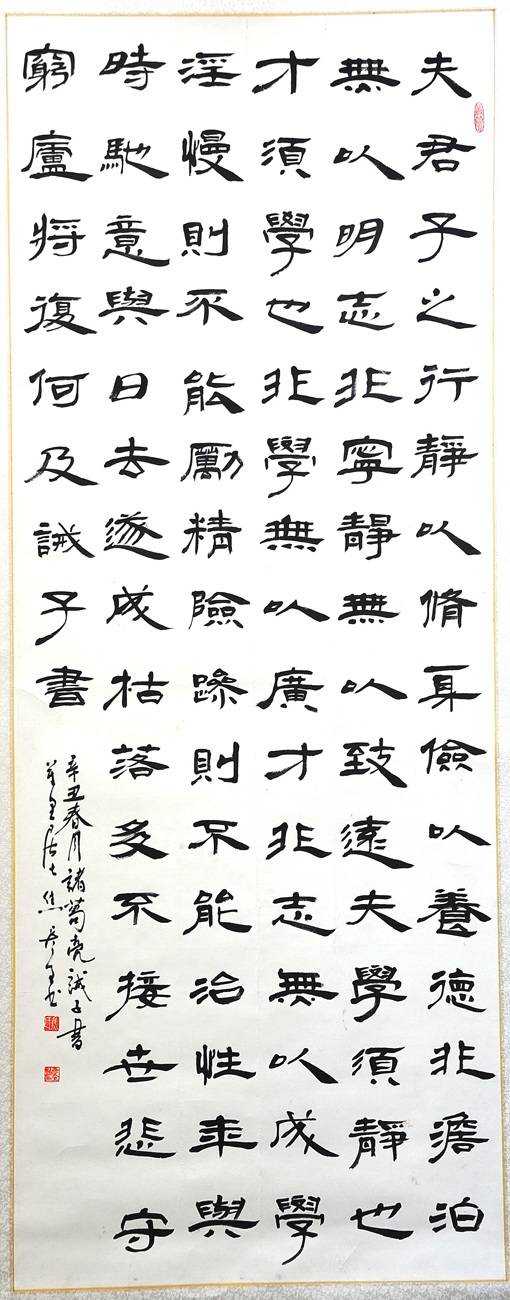 夫君子之行靜以脩身儉以養德非澹泊
無以明志非寧靜無以致遠夫學須靜也
才須學也非學無以廣才非志無以成學
淫慢則不能勵精險躁則不能治性年與
時馳意與日去遂成枯落多不接世悲守
窮廬將復何及誡子書
辛丑春月諸葛亮誡子書
居士焦